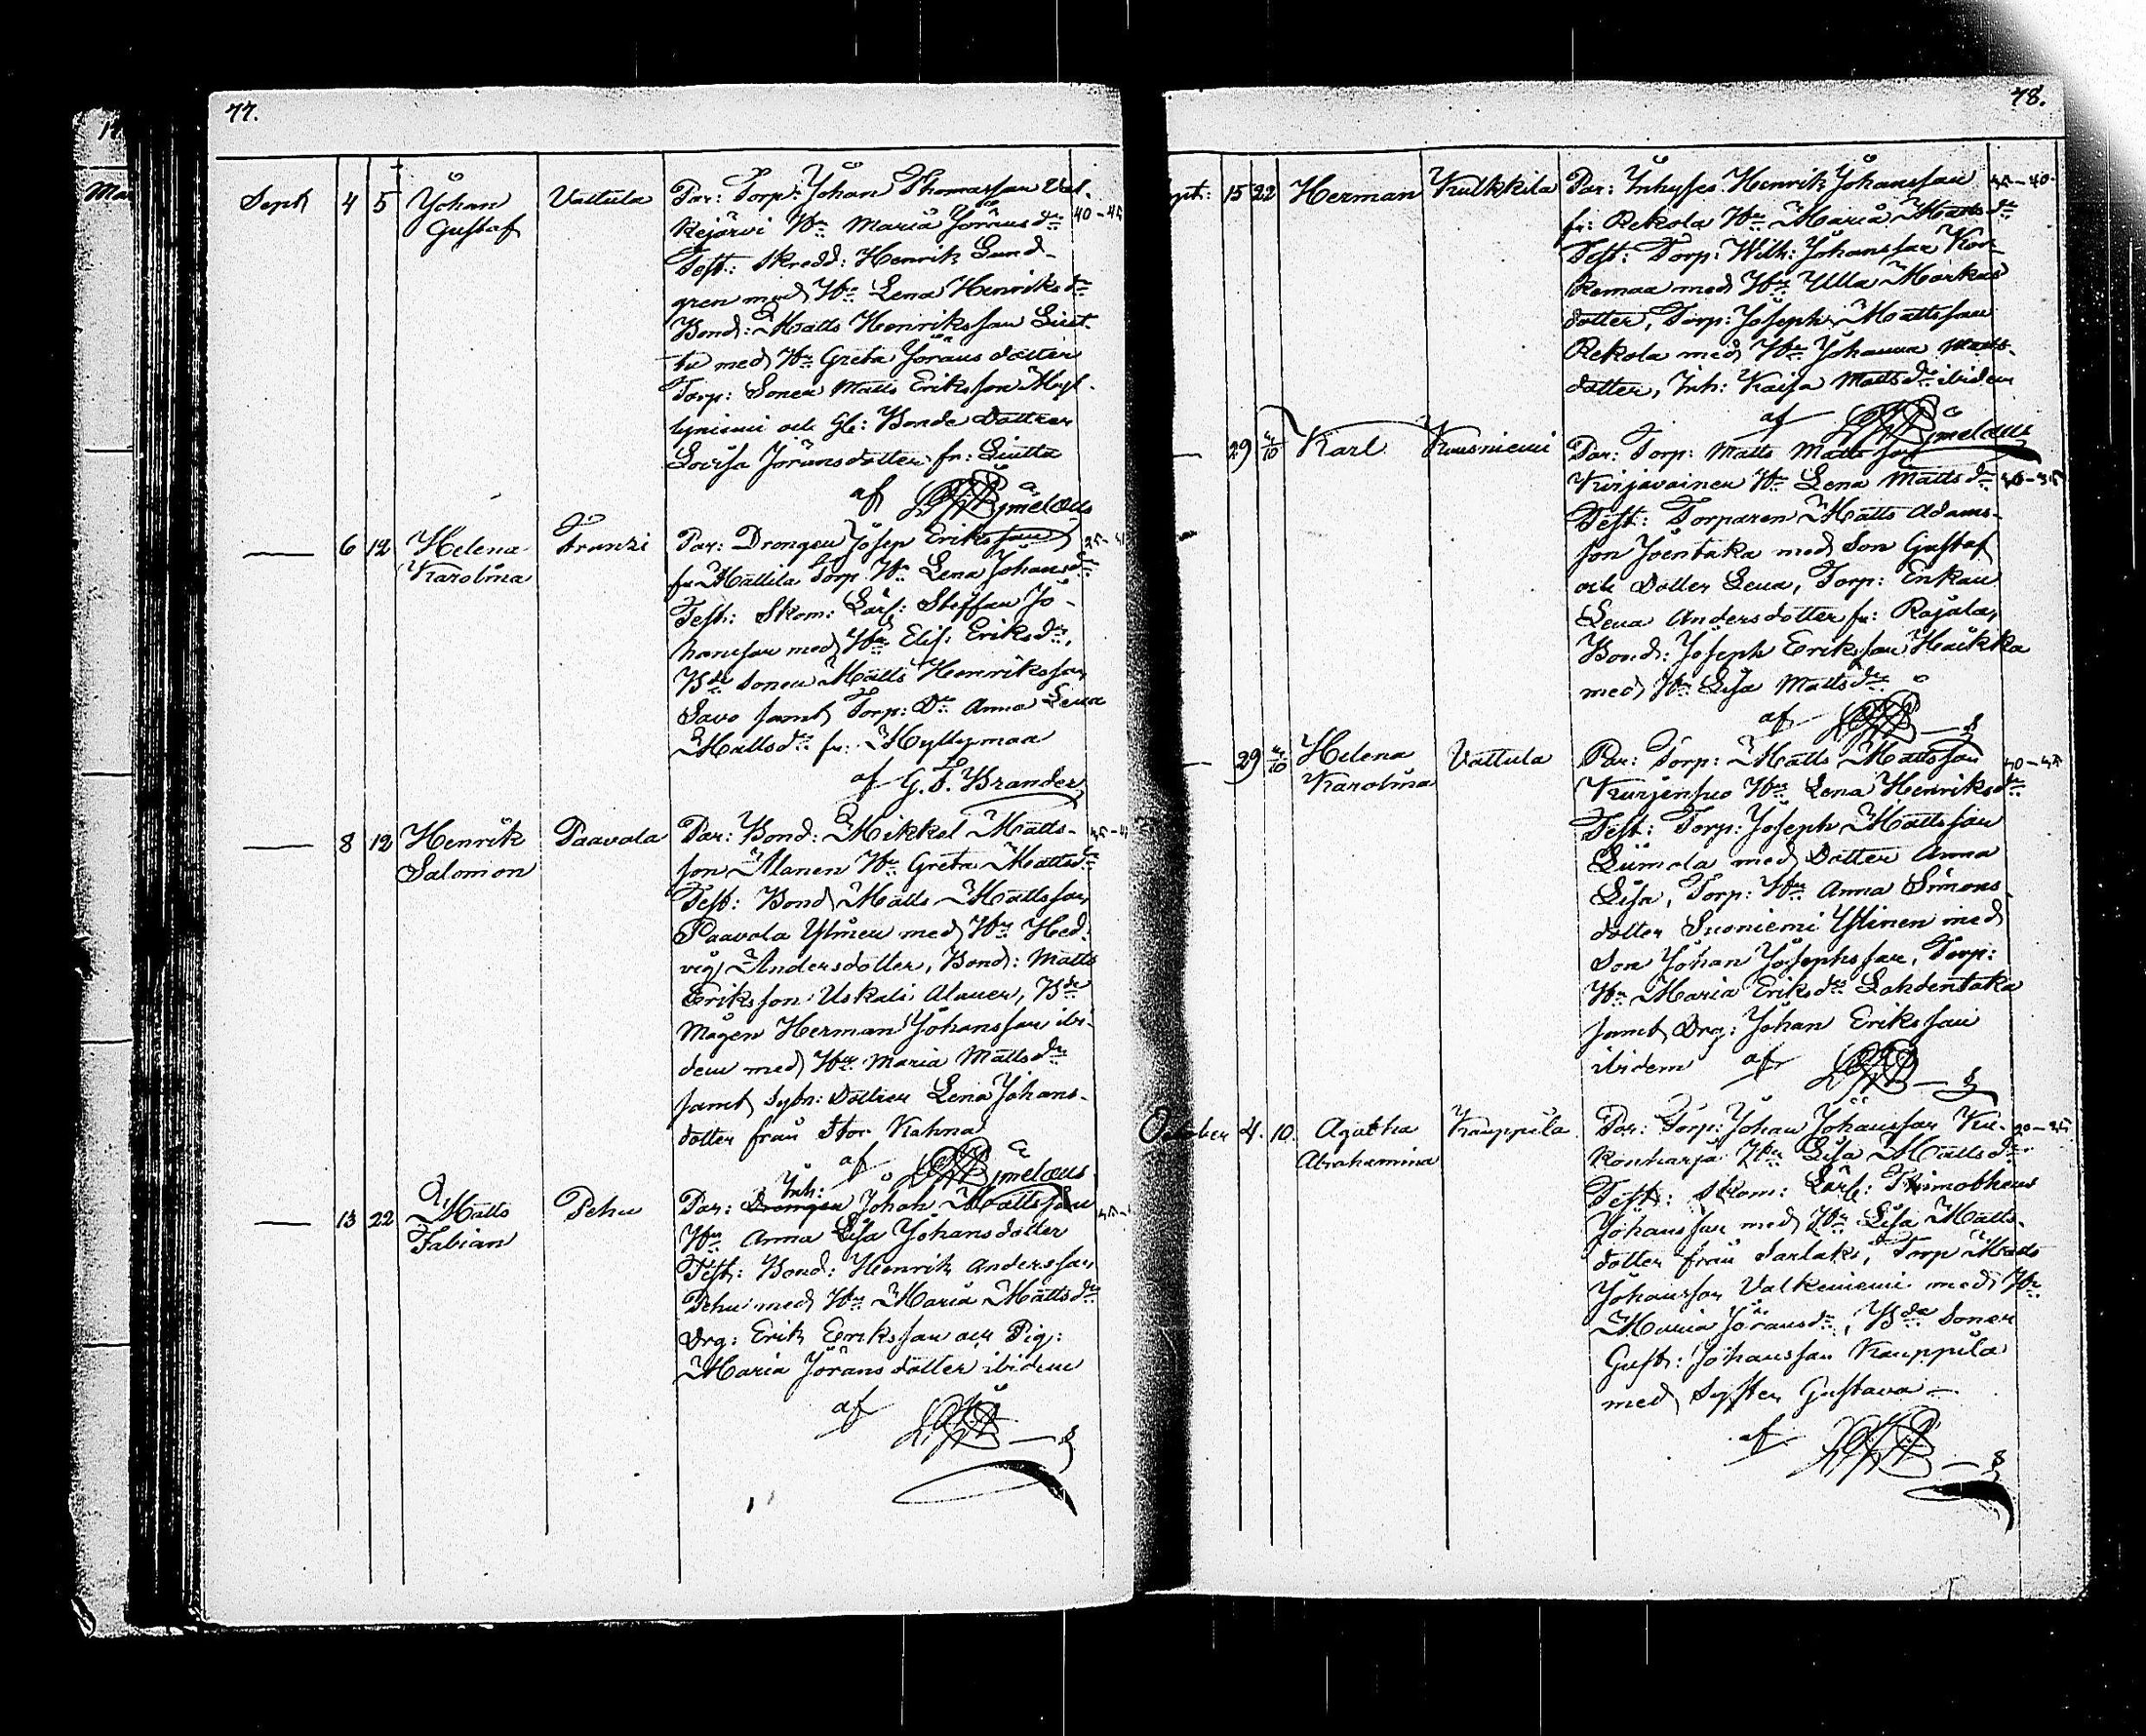 77.
Sept 4 5 Johan Gustaf Vattula Par: Torp: Johan Thomasson Val- 40-45
kejärvi Hu Maria Jöransdr
Test: Skredd: Henrik Lund-
gren med Hu Lena Henriksdr
Bond: Matts Henriksson Liut-
tu med Hu Greta Jöransdotter
Torp: Sonen Matts Eriksson Myl-
lyniemi och Gl: Bonde Dottren
Lovisa Jöransdotter fr: Liutta
af
— 6 12 Helena Karolina Franzi Par: Drengen Josep Eriksson
fr Mattila Torp Hu Lena Johansdr
Test: Skom: Lärl: Steffan Jo-
hansson med Hu Elis: Eriksdr,
Bde Sonen Matts Henriksson
Savo samt Torp: Dr Anna Lena
Mattsdr fr: Myllymaa
af G. F. Brander
— 8 12 Henrik Salomon Paavola Par: Bond: Mikkel Matts-
son Alanen Hu Greta Mattsdr
Test: Bond Matts Mattsson
Paavola Ylinen med Hu Hed-
vig Andersdotter, Bond: Matts
Eriksson Uskali Alanen, Bde
Mågen Herman Johansson ibi-
dem med Hu Maria Mattsdr
samt Sytn: Dottren Lena Johans-
dotter från Stor Kahna
af
Inh:
— 13 22 Matts Fabian Pehu Par: Drengen Johan Mattsson
Hu Anna Lisa Johansdotter
Test: Bond: Henrik Andersson
Pehu med Hu Maria Mattsdr
Drg: Erik Eriksson och Pig:
Maria Jöransdotter ibidem
af
78.
Sept: 15 22 Herman Kulkkila Par: Inhyses Henrik Johansson 35-40
fr: Rekola Hu Maria Mattsdr
Test: Torp: Wilh: Johansson Kor-
kemaa med Hu Ulla Markus
dotter, Torp: Joseph Mattsson
Rekola med Hu Johanna Matts-
dotter, Inh: Kaisa Mattsdr ibidem
af
— 29 4/10 Karl Kuusniemi Par: Torp: Matts Mattsson
Kirjavainen Hu Lena Mattsdr
Test: Torparen Matts Adams-
son Joentaka med Son Gustaf
och Dotter Lena, Torp: Enkan
Lena Andersdotter fr: Rajala,
Bond: Joseph Eriksson Haikka
med Hu Lisa Mattsdr
af
— 29 4/10 Helena Karolina Vattula Par: Torp: Matts Mattsson
Kurjensuo Hu Lena Henriksdr
Test: Torp: Joseph Mattsson
Liimola med Dotter Anna
Lisa, Torp: Hu Anna Simons-
dotter Suoniemi Ylinen med
Son Johan Josephsson, Torp:
Hu Maria Eriksdr Lahdentaka
samt Drg: Johan Eriksson
ibidem af
October 4. 10. Agatha Abrahamina Kauppila Par: Torp: Johan Johansson Ku-
konharja Hu Lisa Mattsdr
Test: Skom: Lärl: Thimotheus
Johansson med Hu Lisa Matts-
dotter från Sarlaks, Torp Matts
Johansson Valkeniemi med Hu
Maria Jöransdr, Bde Sonen
Gust: Johansson Kauppila
med Syster Gustava —
af